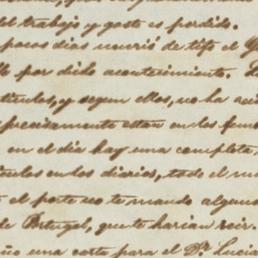 del trabajo y gasto es perdido.
pocos dias murió de tifo el
por dicho acontecimiento.
y segun ellos, no ha
precisamente estan en los
en el dia hay una completa
en los diarios, todo el
el porte no te mando algunos
de Portugal, que te harían reir.
una carta para el Dr. Lucia